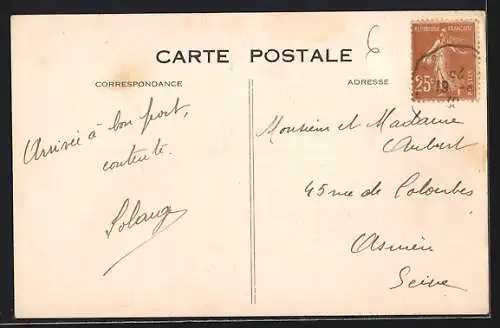 CARTE POSTALE
CORRESPONDANCE
ADRESSE
RÉPUBLIQUE FRANÇAISE
25c
POSTES
Arrivée à bon port,
contente.
Solange
6
Monsieur et Madame
Aubert
45 rue de Colombes
Asnières
Seine